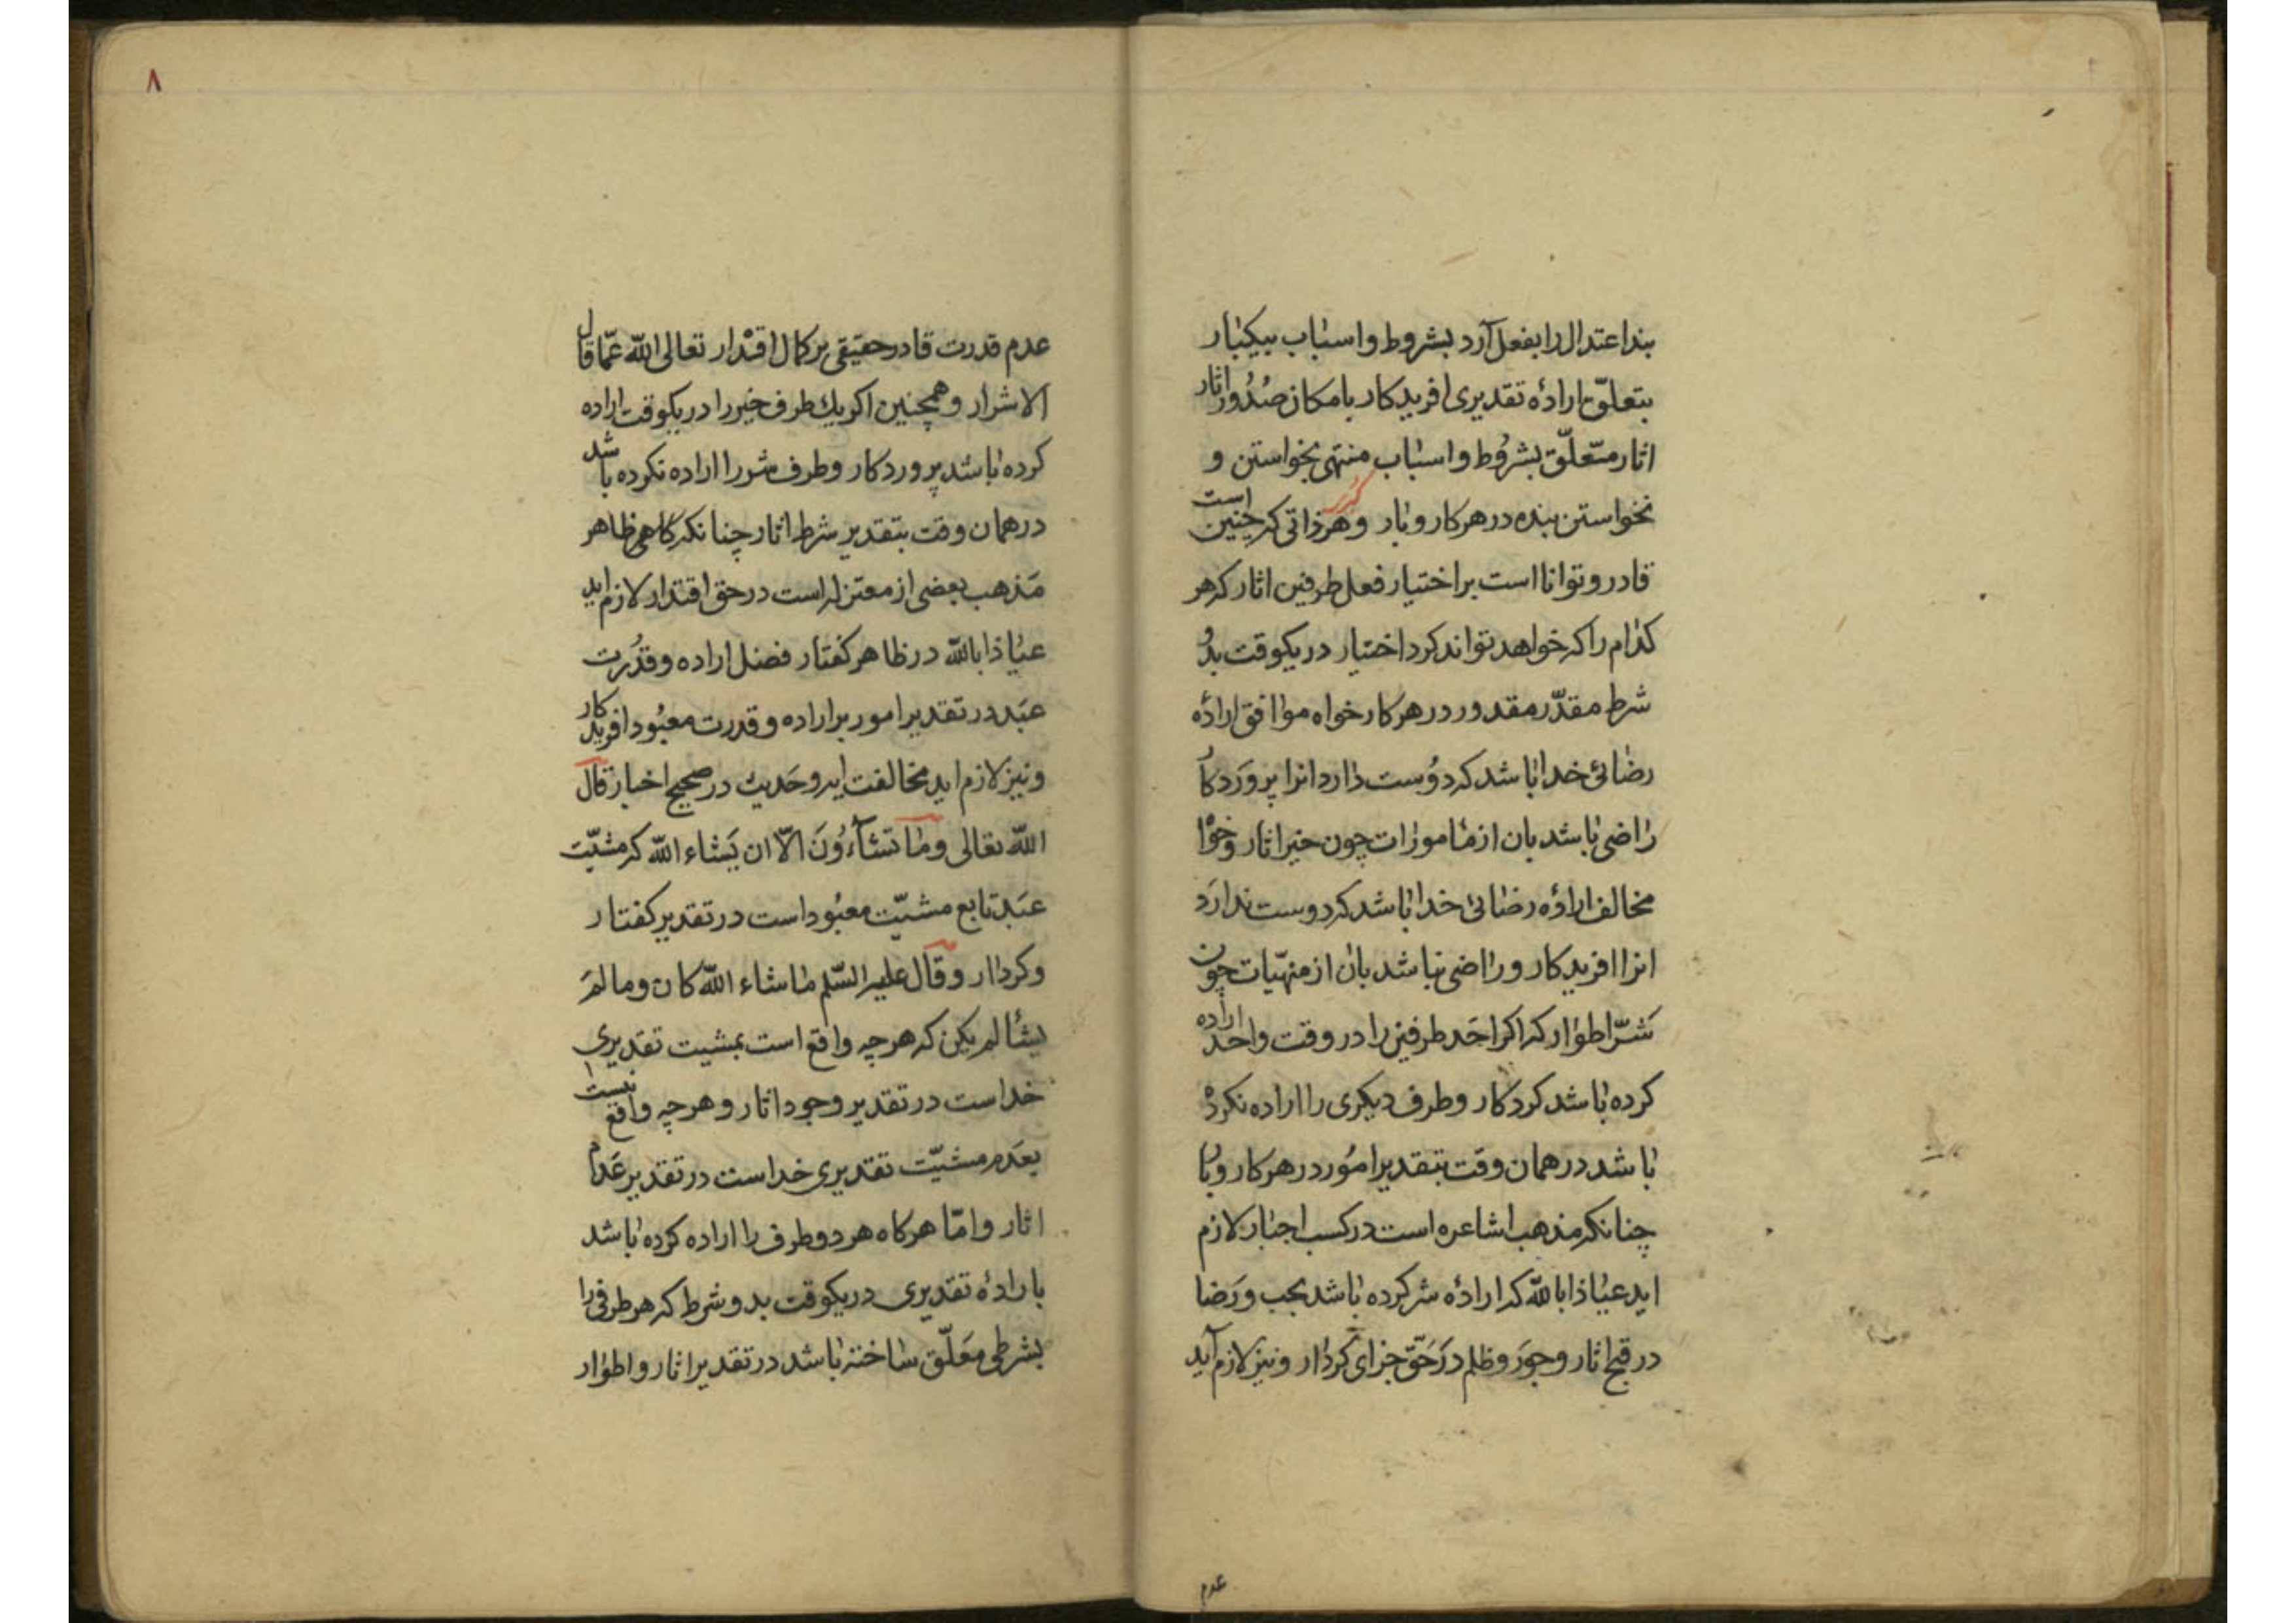 بنداعتدال را بفعل آرد بشروط و اسباب بیکبار
بتعلّق ارادهٔ تقدیری افریدکار بامکان صُدُور اثار
اثار متعلّق بشرُوط و اسباب منتهی بخواستن و
نخواستن بنده در هر کار و بار و هر ذاتی که چنین است
قادر و توانا است بر اختیار فعل طرفین اثار که هر
کدام را که خواهد تواند کرد اختیار در یکوقت بدُو
شرط مقدّر مقدور در هر کار خواه موافق ارادهٔ
رضائئ خدا باشد که دوُست دارد انرا پروَردکار
راضی باشد بان از ماموُرات چون خیر اثار و خواه
مخالف ارادهٔ رضائئ خدا باشد که دوست ندارَد
انرا افریدکار و راضی نباشد بان از منهیّات چون
شَرّ اطوار که اکر احَد طرفین را در وقت واحد اراده
کرده باشد کردکار و طرف دیکری را اراده نکرده
باشد در همان وقت بتقدیر امُور در هر کار و بار
چنانکه مذهب اشاعره است در کسب اجبار لازم
اید عیاذا بالله که ارادهٔ شر کرده باشد بحب و رَضا
در قبح اثار و جوَر و ظلم درَ حَقّ جزای کردار و نیز لازم آید
عدم
۸
عدم قدرت قادر حقیقی بر کمال اقتدار تعالی اللّه عمّا قال
الاشرار و همچنین اکر یك طرف خیر را در یکوقت اراده
کرده باشد پروردکار و طرف شر را اراده نکرده باشد
در همان وقت بتقدیر شرط اثار چنانکه کاهی ظاهر
مَذهب بعضی از معتزله است در حق اقتدار لازم اید
عیاذا بالله در ظاهر کفتار فضل اراده و قدُرت
عبَد در تقدیر امور بر اراده و قدرت معبُود افریدکار
و نیز لازم اید مخالفت ایه و حَدیث در صحیح اخبار قال
اللّه تعالی وما تشآءُونَ الاّ ان یَشاء اللّه که مشیّت
عبَد تابع مشیّت معبُود است در تقدیر کفتار
و کردار و قال علیه السّلم ما شاء اللّه کان و ما لمَ
یشأ لم یکن که هرچه واقع است بمشیت تقدیری
خداست در تقدیر وجود اثار و هرچه واقع نیست
بعَدم مشیّت تقدیری خداست در تقدیر عَدم
اثار و امّا هرکاه هر دو طرف را اراده کرده باشد
بارادهٔ تقدیری در یکوقت بدو شرط که هر طرفی را
بشرطی معَلّق ساخته باشد در تقدیر اثار و اطوار